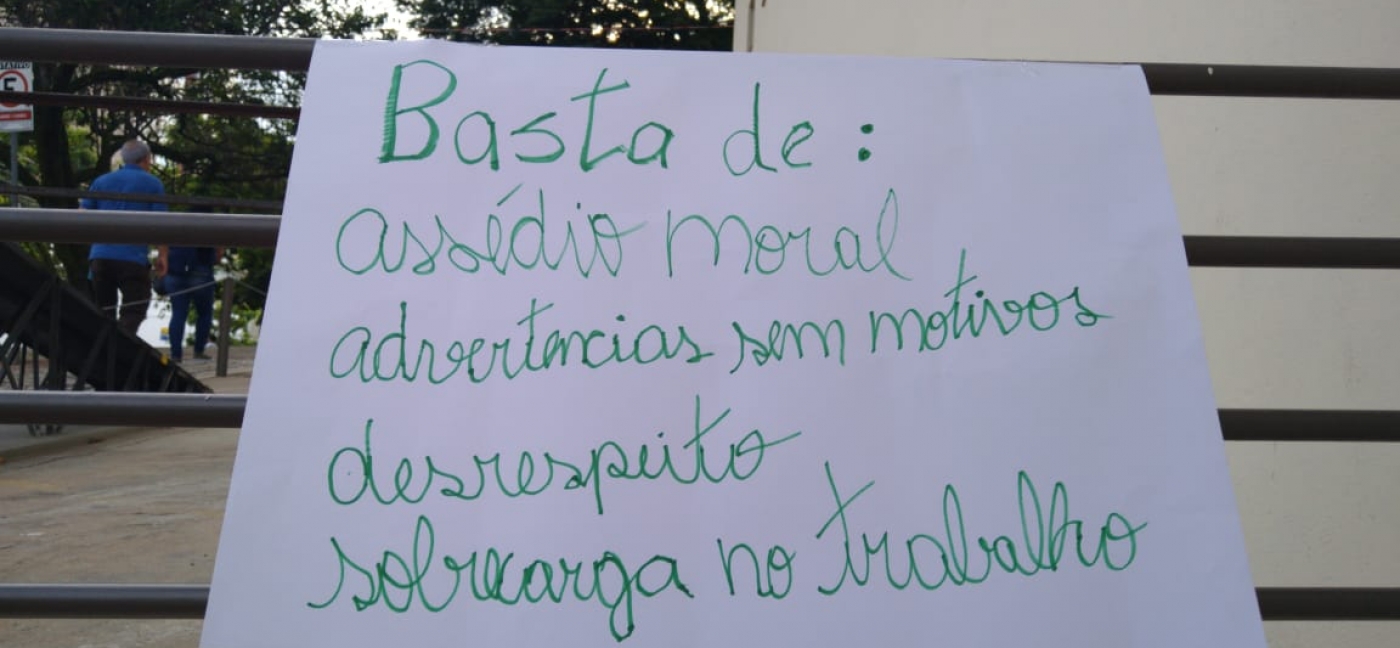 Basta de :
assédio moral
advertencias sem motivos
desrespeito
sobrecarga no trabalho
E